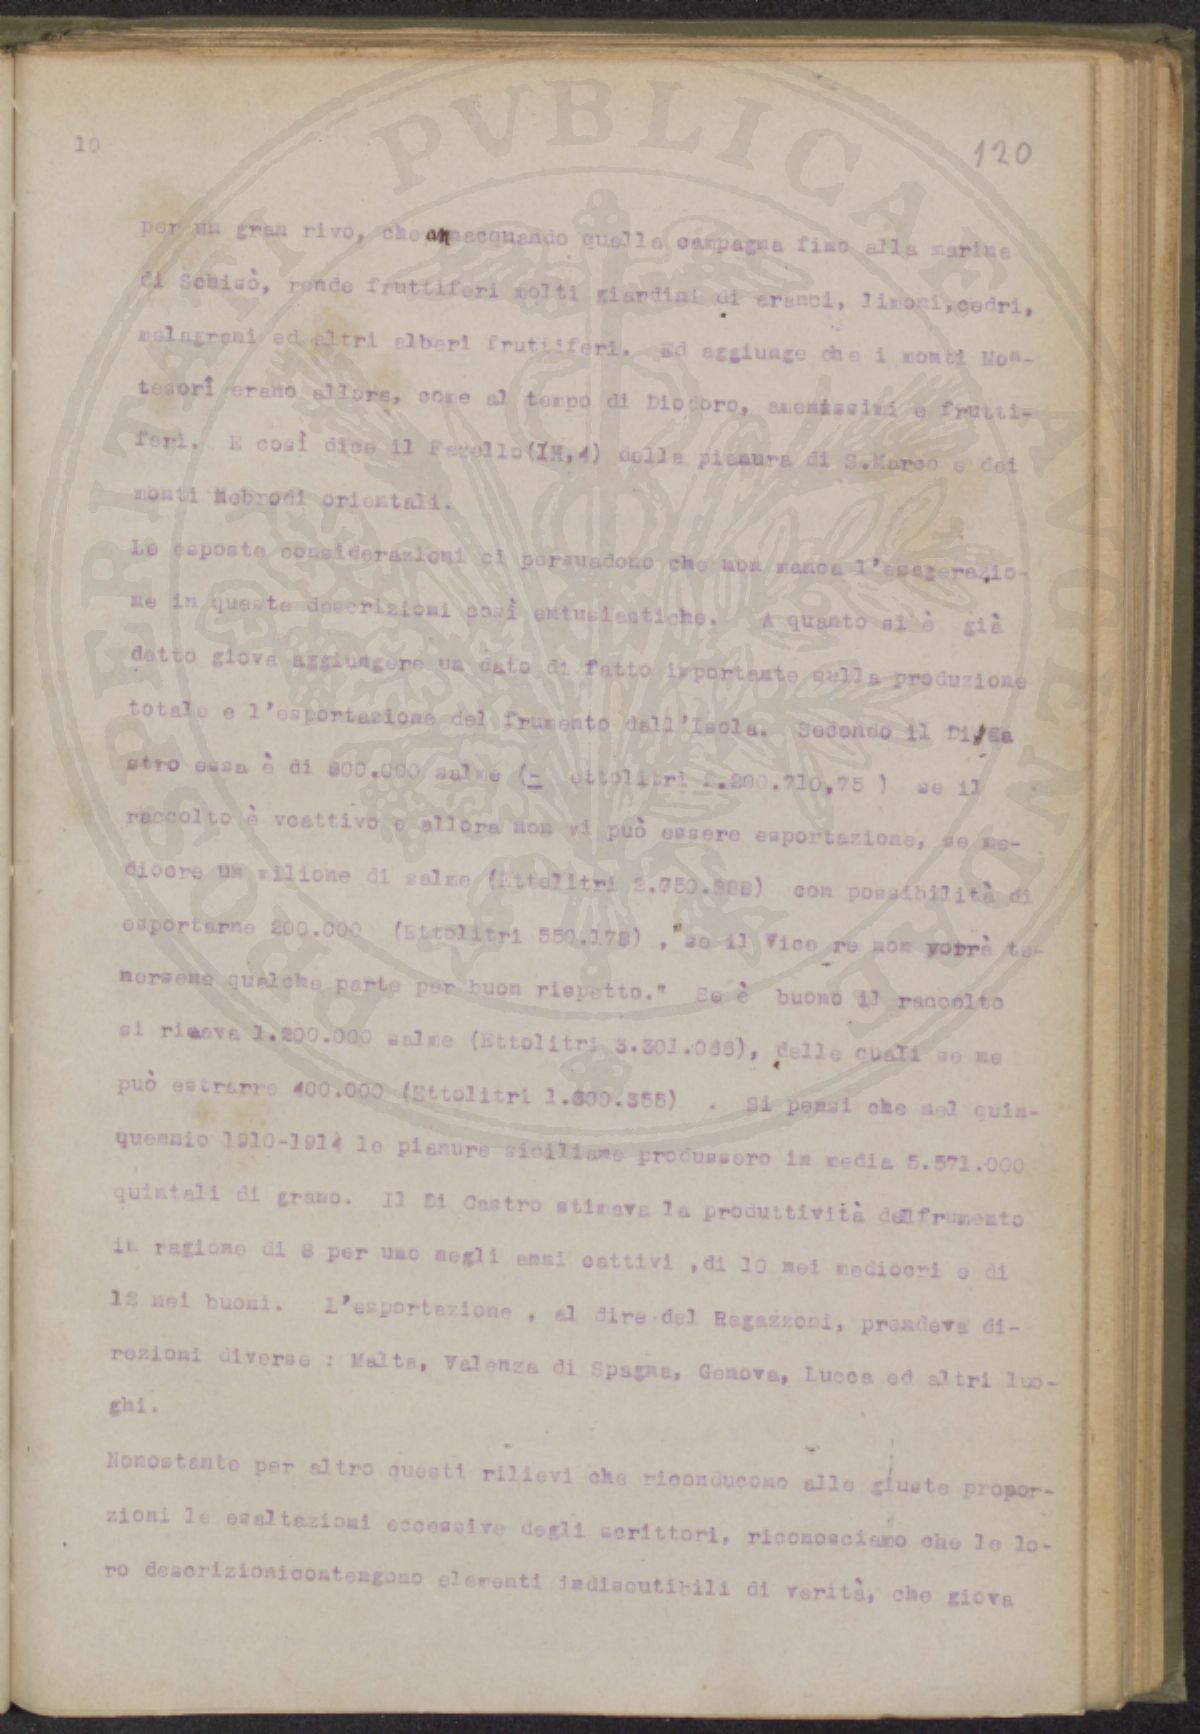 10
120
per un gran rivo, che annacquando quella campagna fino alla marina
di Schisò, rende fruttiferi molti giardini di aranci, limoni,cedri,
melagrani ed altri alberi fruttiferi. Ed aggiunge che i monti Mon-
tesori erano allora, come al tempo di Diodoro, amenissimi e frutti-
feri. E così dice il Fazello(IX,4) della pianura di S.Marco e dei
monti Nebrodi orientali.
Le esposte considerazioni ci persuadono che non manca l'esagerazio-
ne in queste descrizioni così entusiastiche. A quanto si è già
detto giova aggiungere un dato di fatto importante sulla produzione
totale e l'esportazione del frumento dall'Isola. Secondo il Di Ca
stro essa è di 800.000 salme (= ettolitri 2.200.710,75 ) se il
raccolto è vcattivo e allora non vi può essere esportazione, se me-
diocre un milione di salme (Ettolitri 2.750.888) con possibilità di
esportarne 200.000 (Ettolitri 550.178) , "se il Vice re non vorrà te-
nersene qualche parte per buon rispetto." Se è buono il raccolto
si ricava 1.200.000 salme (Ettolitri 3.301.066), delle quali se ne
può estrarre 400.000 (Ettolitri 1.600.355) . Si pensi che nel quin-
quennio 1910-1914 le pianure siciliane produssero in media 5.571.000
quintali di grano. Il Di Castro stimava la produttività delfrumento
in ragione di 8 per uno negli anni cattivi ,di 10 nei mediocri e di
12 nei buoni. L'esportazione , al dire del Ragazzoni, prendeva di-
rezioni diverse : Malta, Valenza di Spagna, Genova, Lucca ed altri luo-
ghi.
Nonostante per altro questi rilievi che riconducono alle giuste propor-
zioni le esaltazioni eccessive degli scrittori, riconosciamo che le lo-
ro descrizionicontengono elementi indiscutibili di verità, che giova
PROPERITATI PVBLICAE AVGENDAE